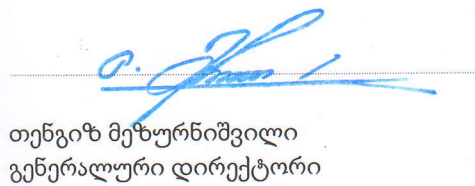 თენგიზ მეზურნიშვილი
გენერალური დირექტორი